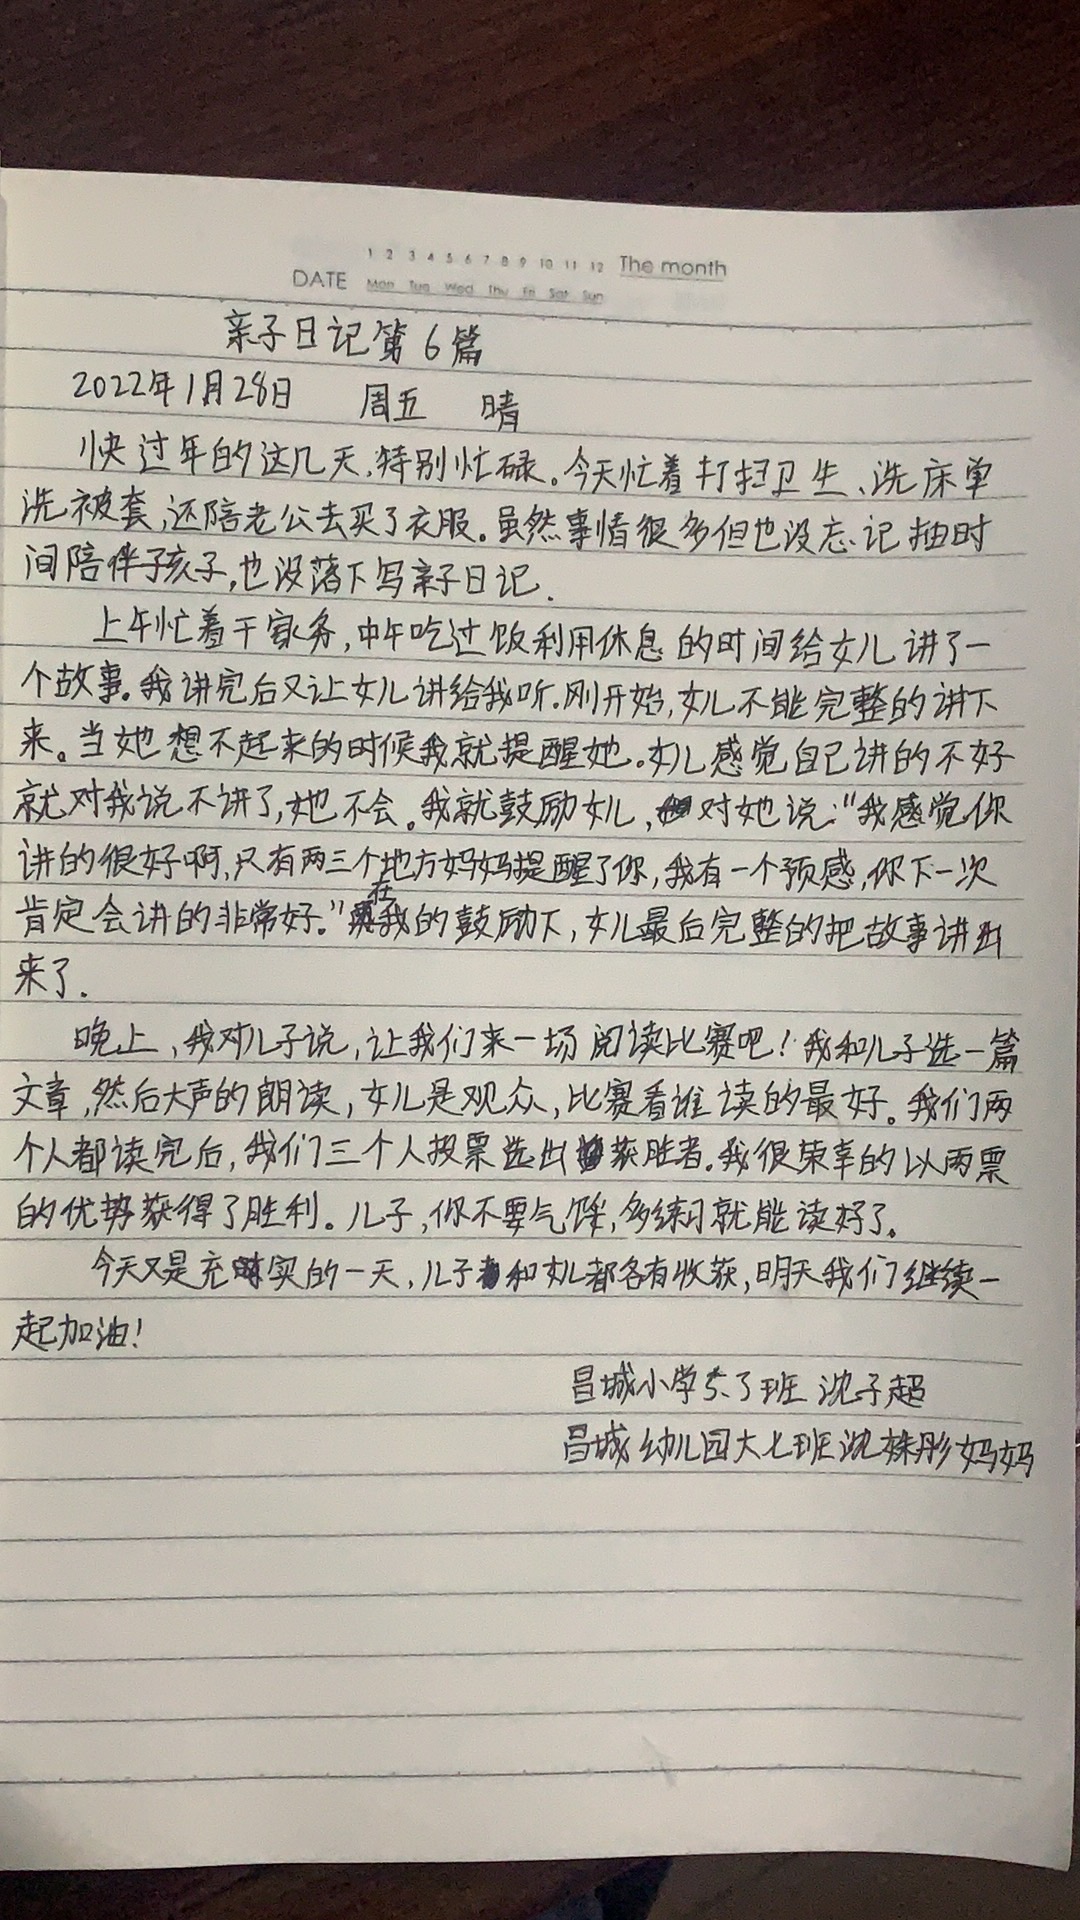 1 2 3 4 5 6 7 8 9 10 11 12 The month
DATE Mon Tue Wed Thu Fri Sat Sun
亲子日记第6篇
2022年1月28日 周五 晴
快过年的这几天,特别忙碌。今天忙着打扫卫生、洗床单
洗被套,还陪老公去买了衣服。虽然事情很多但也没忘记抽时
间陪伴孩子,也没落下写亲子日记.
上午忙着干家务,中午吃过饭利用休息的时间给女儿讲了一
个故事。我讲完后又让女儿讲给我听.刚开始,女儿不能完整的讲下
来。当她想不起来的时候我就提醒她.女儿感觉自己讲的不好
就对我说不讲了,她不会。我就鼓励女儿,对她说:"我感觉你
讲的很好啊,只有两三个地方妈妈提醒了你,我有一个预感,你下一次
肯定会讲的非常好."在我的鼓励下,女儿最后完整的把故事讲出
来了.
晚上,我对儿子说,让我们来一场阅读比赛吧!我和儿子选一篇
文章,然后大声的朗读,女儿是观众,比赛看谁读的最好。我们两
个人都读完后,我们三个人投票选出获胜者.我很荣幸的以两票
的优势获得了胜利。儿子,你不要气馁,多练习就能读好了。
今天又是充实的一天,儿子和女儿都各有收获,明天我们继续一
起加油!
昌城小学 班 沈子超
昌城幼儿园大七班沈姝彤妈妈